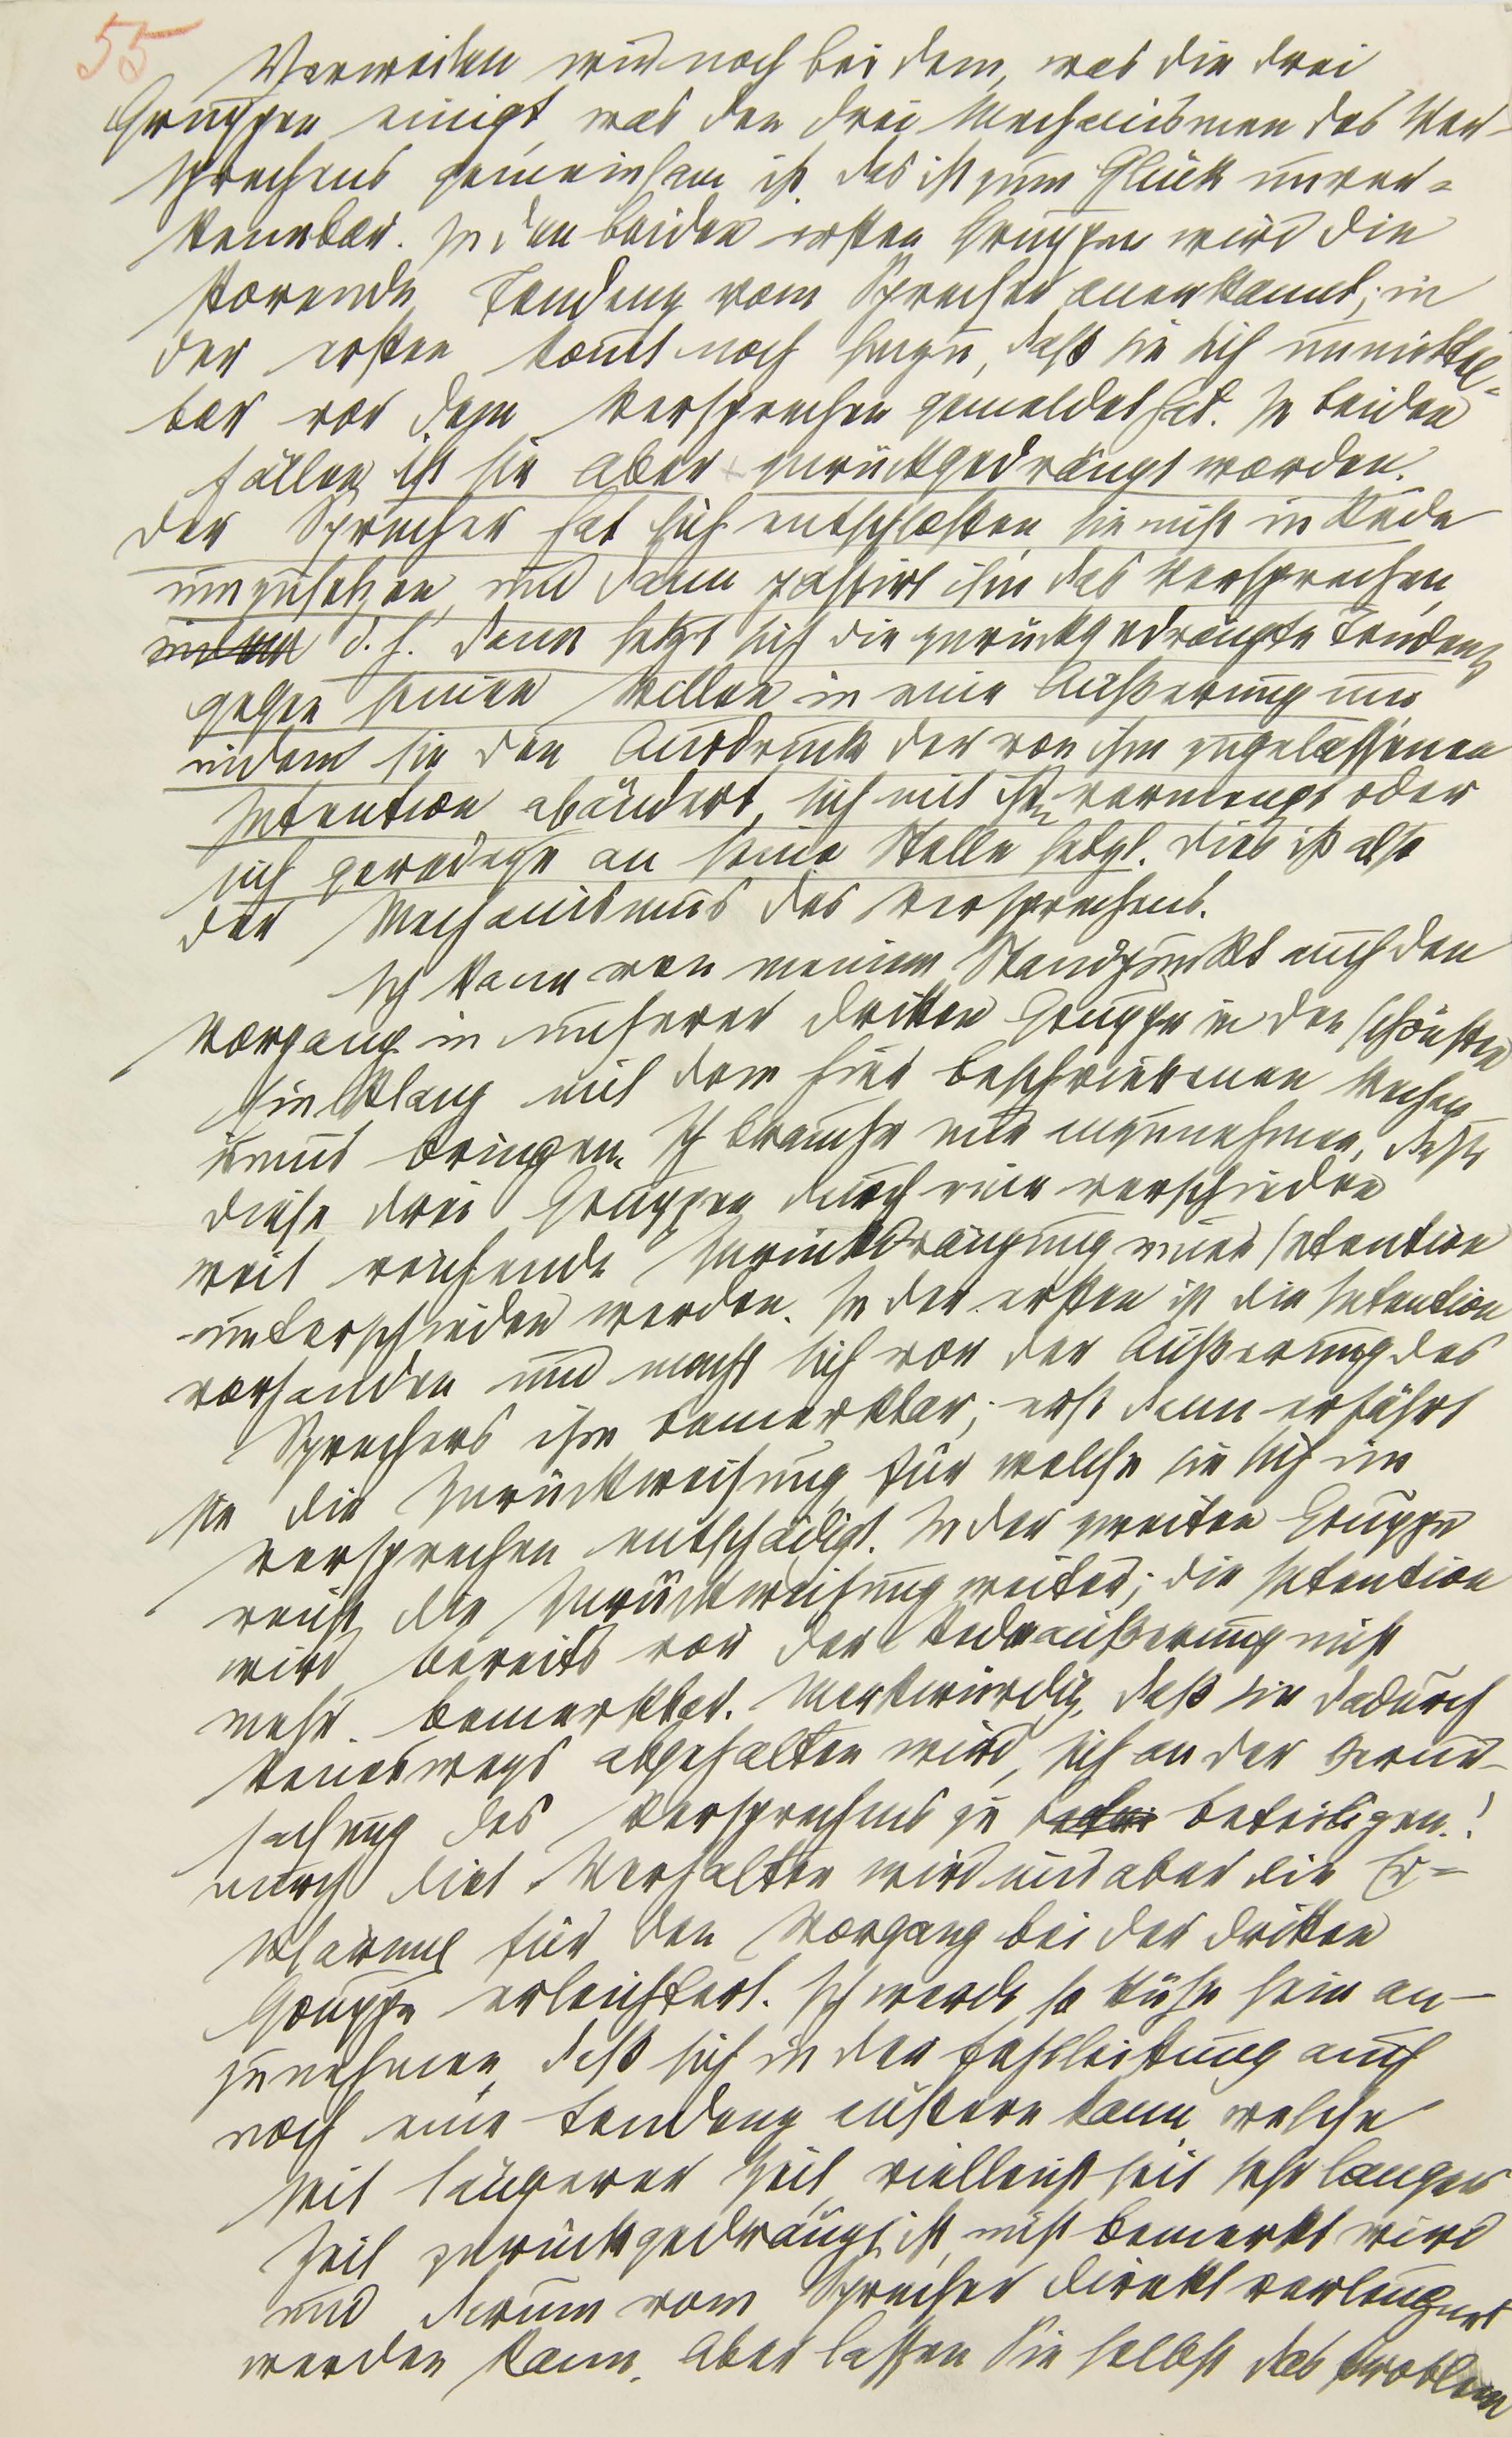 55
Verweilen wir noch bei dem, was die drei
Gruppen einigt, was den drei Mechanismen des Ver-
sprechens gemeinsam ist. Das ist zum Glück unver-
kennbar. In den beiden ersten Gruppen wird die
störende Tendenz vom Sprecher anerkannt; in
der ersten kommt noch hinzu, daß sie sich unmittel-
bar vor dem Versprechen gemeldet hat. In beiden
Fällen ist sie aber zurückgedrängt worden.
Der Sprecher hat sich entschlossen, sie nicht in Rede
umzusetzen, und dann passirt ihm das Versprechen,
d. h. dann setzt sich die zurückgedrängte Tendenz
gegen seinen Willen in eine Äußerung um
indem sie den Ausdruck der von ihm zugelassenen
Intention abändert, sich mit ihm vermengt oder
sich geradezu an seine Stelle setzt. Dies ist also
der Mechanismus des Versprechens.
Ich kann von meinem Standpunkt auch den
Vorgang in unserer dritten Gruppe in den schönsten
Einklang mit dem hier beschriebenen Mechan-
ismus bringen. Ich brauche nur anzunehmen, daß
diese drei Gruppen durch eine verschieden
weit reichende Zurückdrängung einer Intention
unterschieden werden. In der ersten ist die Intention
vorhanden und macht sich vor der Äußerung des
Sprechers ihm bemerkbar; erst dann erfährt
sie die Zurückweisung, für welche sie sich im
Versprechen entschädigt. In der zweiten Gruppe
reicht die Zurückweisung weiter; die Intention
wird bereits vor der Redeäußerung nicht
mehr bemerkbar. Merkwürdig, daß sie dadurch
keineswegs abgehalten wird, sich an der Verur-
sachung des Versprechens zu beteiligen!
Durch dies Verhalten wird uns aber die Er-
klärung für den Vorgang bei der dritten
Gruppe erleichtert. Ich werde so kühn sein an-
zunehmen, daß sich in der Fehlleistung auch
noch eine Tendenz äußern kann, welche
seit längerer Zeit, vielleicht seit sehr langer
Zeit zurückgedrängt ist, nicht bemerkt wird
und darum vom Sprecher direkt verleugnet
werden kann. Aber lassen Sie selbst das Problem